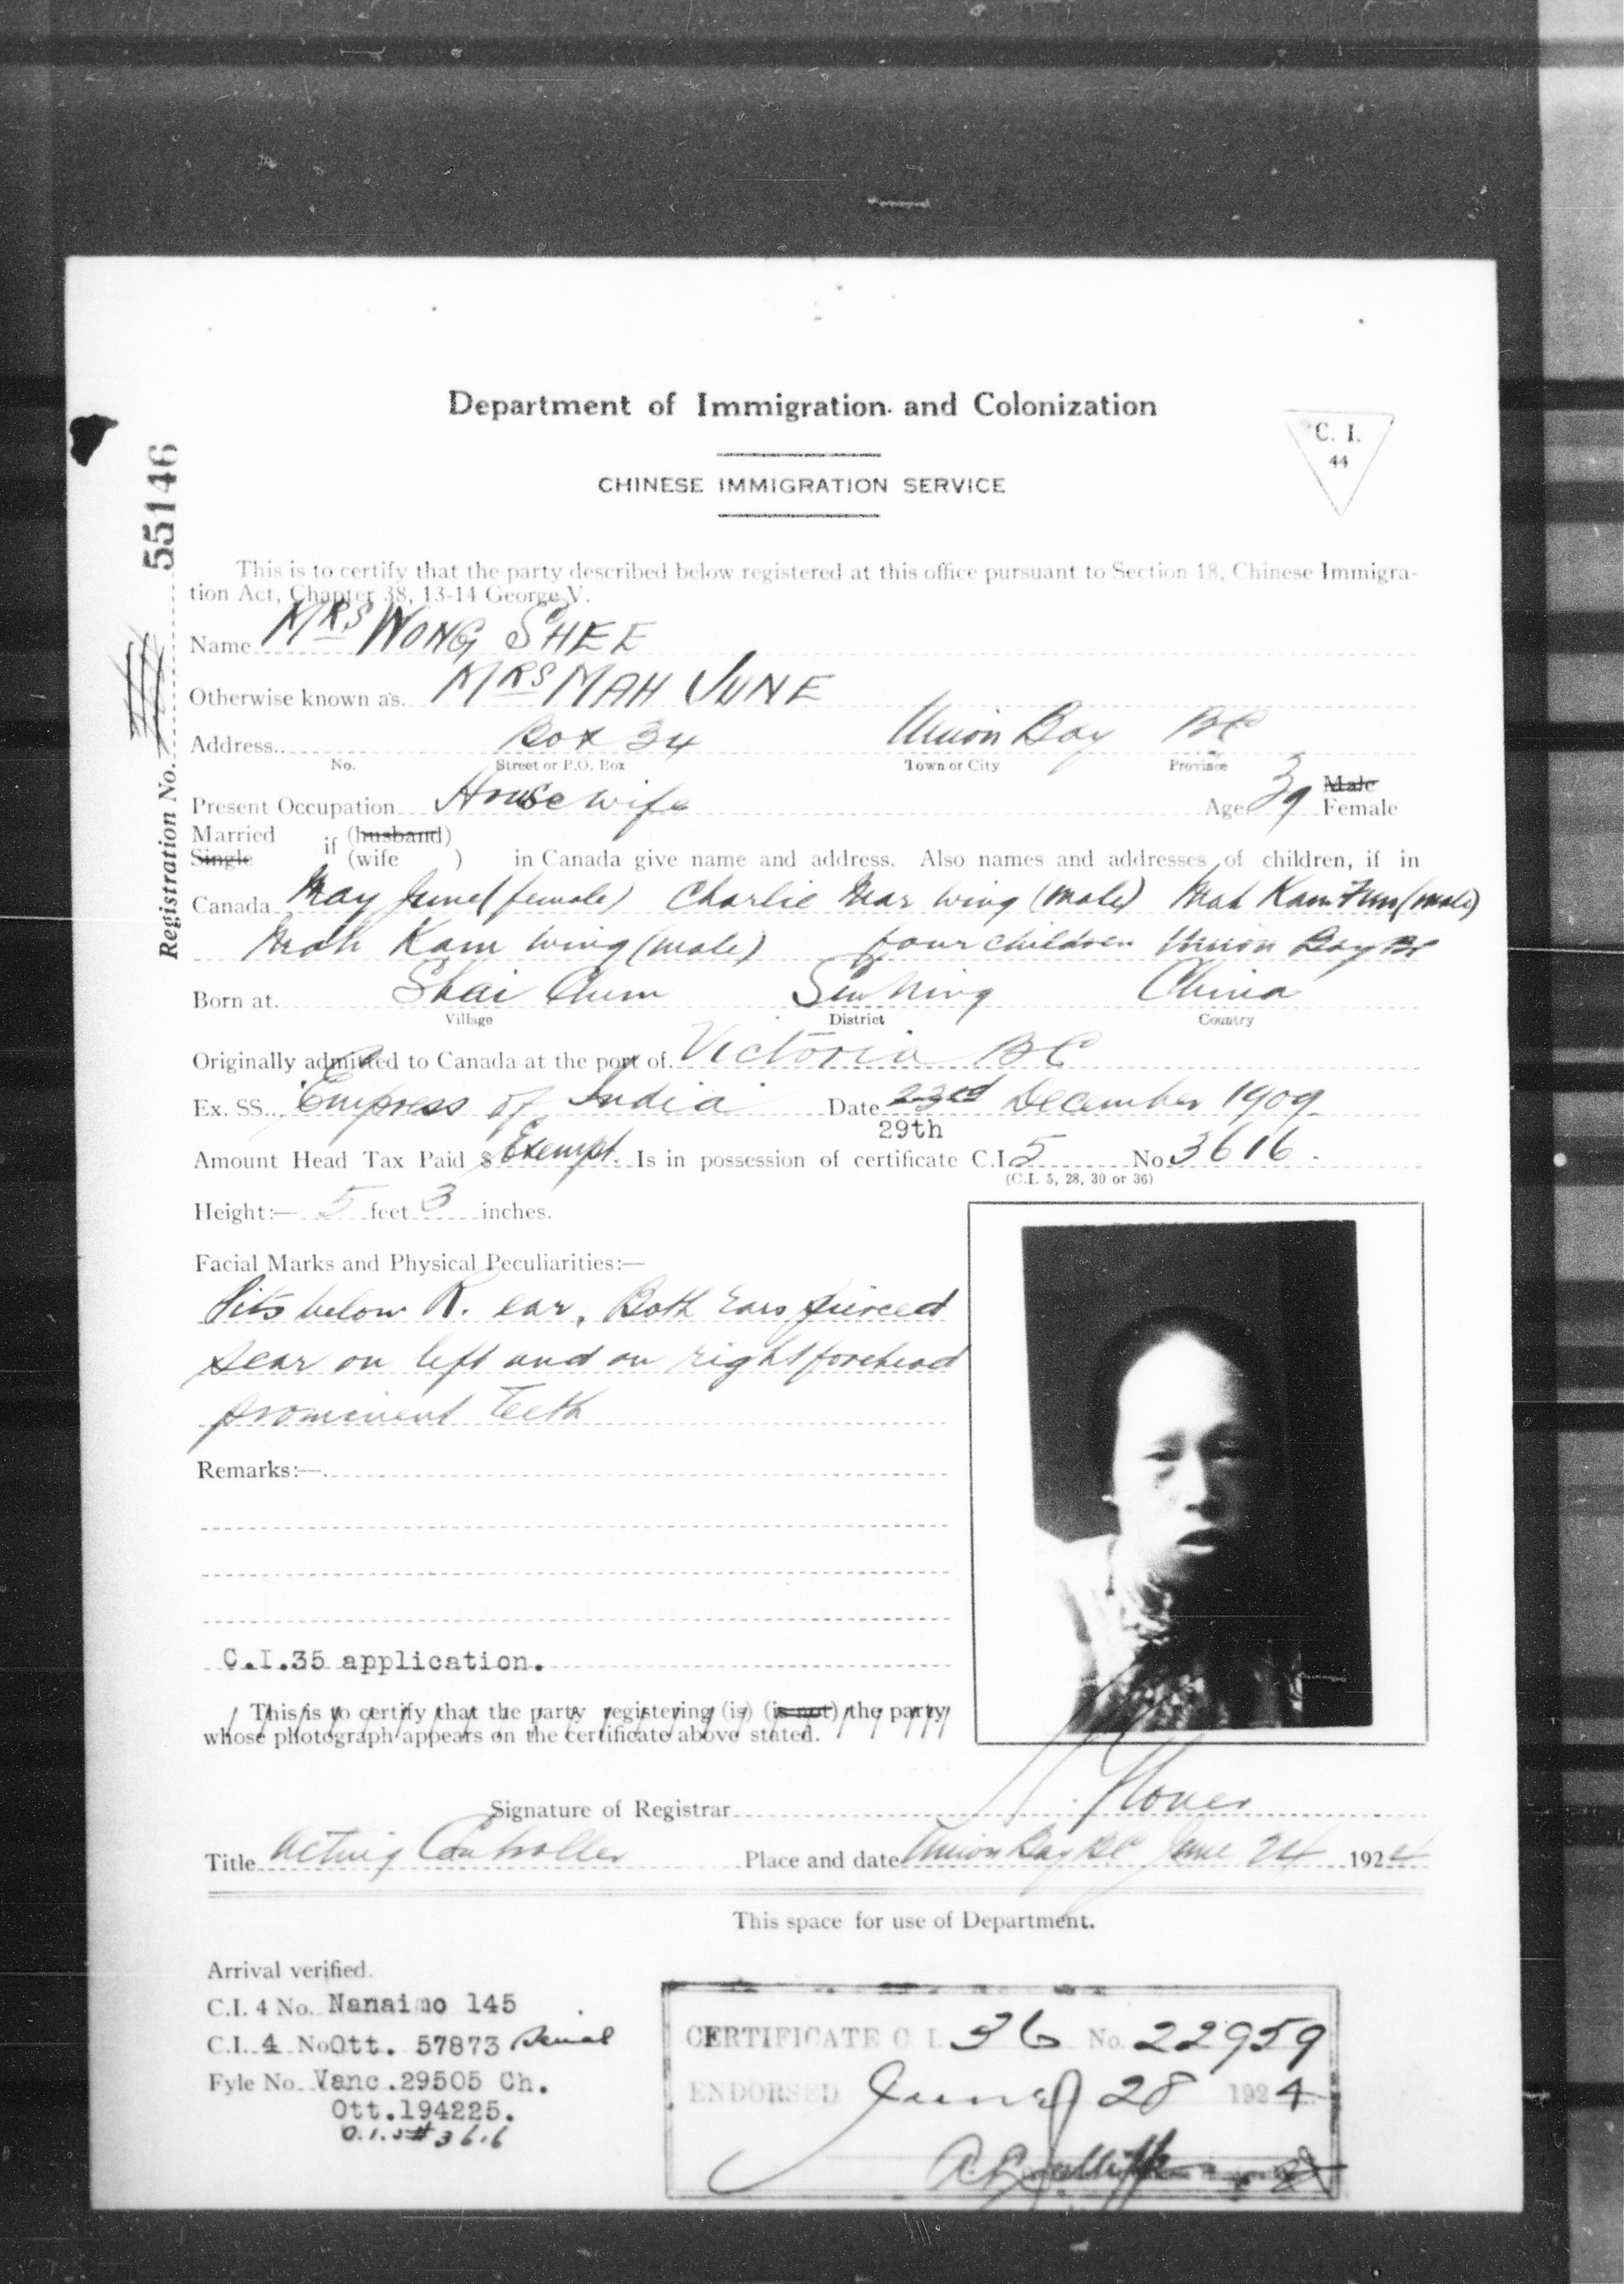 Department of Immigration and Colonization
C. I.
44
CHINESE IMMIGRATION SERVICE
Registration No. 55146
This is to certify that the party described below registered at this office pursuant to Section 18, Chinese Immigra-
tion Act, Chapter 38, 13-14 George V.
Name MRS WONG SHEE
Otherwise known as MRS MAH JUNE
Address Box 34 Union Bay BC
No. Street or P.O. Box Town or City Province
Present Occupation Housewife Age 39 Male Female
Married Single if (husband) (wife ) in Canada give name and address. Also names and addresses of children, if in
Canada May June (female) Charlie Mar Wing (male) Mah Kam Fun (male)
Mah Kam Wing (male) four children Union Bay BC
Born at Shai Chum Sun Ning China
Village District Country
Originally admitted to Canada at the port of Victoria BC
Ex. SS. Empress of India Date 23rd December 1909
29th
Amount Head Tax Paid $ Exempt. Is in possession of certificate C.I. 5 No 3616.
(C.I. 5, 28, 30 or 36)
Height:— 5 feet 3 inches.
Facial Marks and Physical Peculiarities:—
Pits below R. ear. Both Ears pierced
Scar on left and on right forehead
prominent teeth
Remarks:—
C.I.35 application.
This is to certify that the party registering (is) (is not) the party
whose photograph appears on the certificate above stated.
Signature of Registrar
Title Acting Controller Place and date Union Bay BC June 24 1924
This space for use of Department.
Arrival verified.
C.I. 4 No. Nanaimo 145
C.I. 4 No Ott. 57873 Serial
Fyle No. Vanc. 29505 Ch.
Ott. 194225.
C.I.5 # 3616
CERTIFICATE C. I. 36 No. 22959
ENDORSED June 28 1924